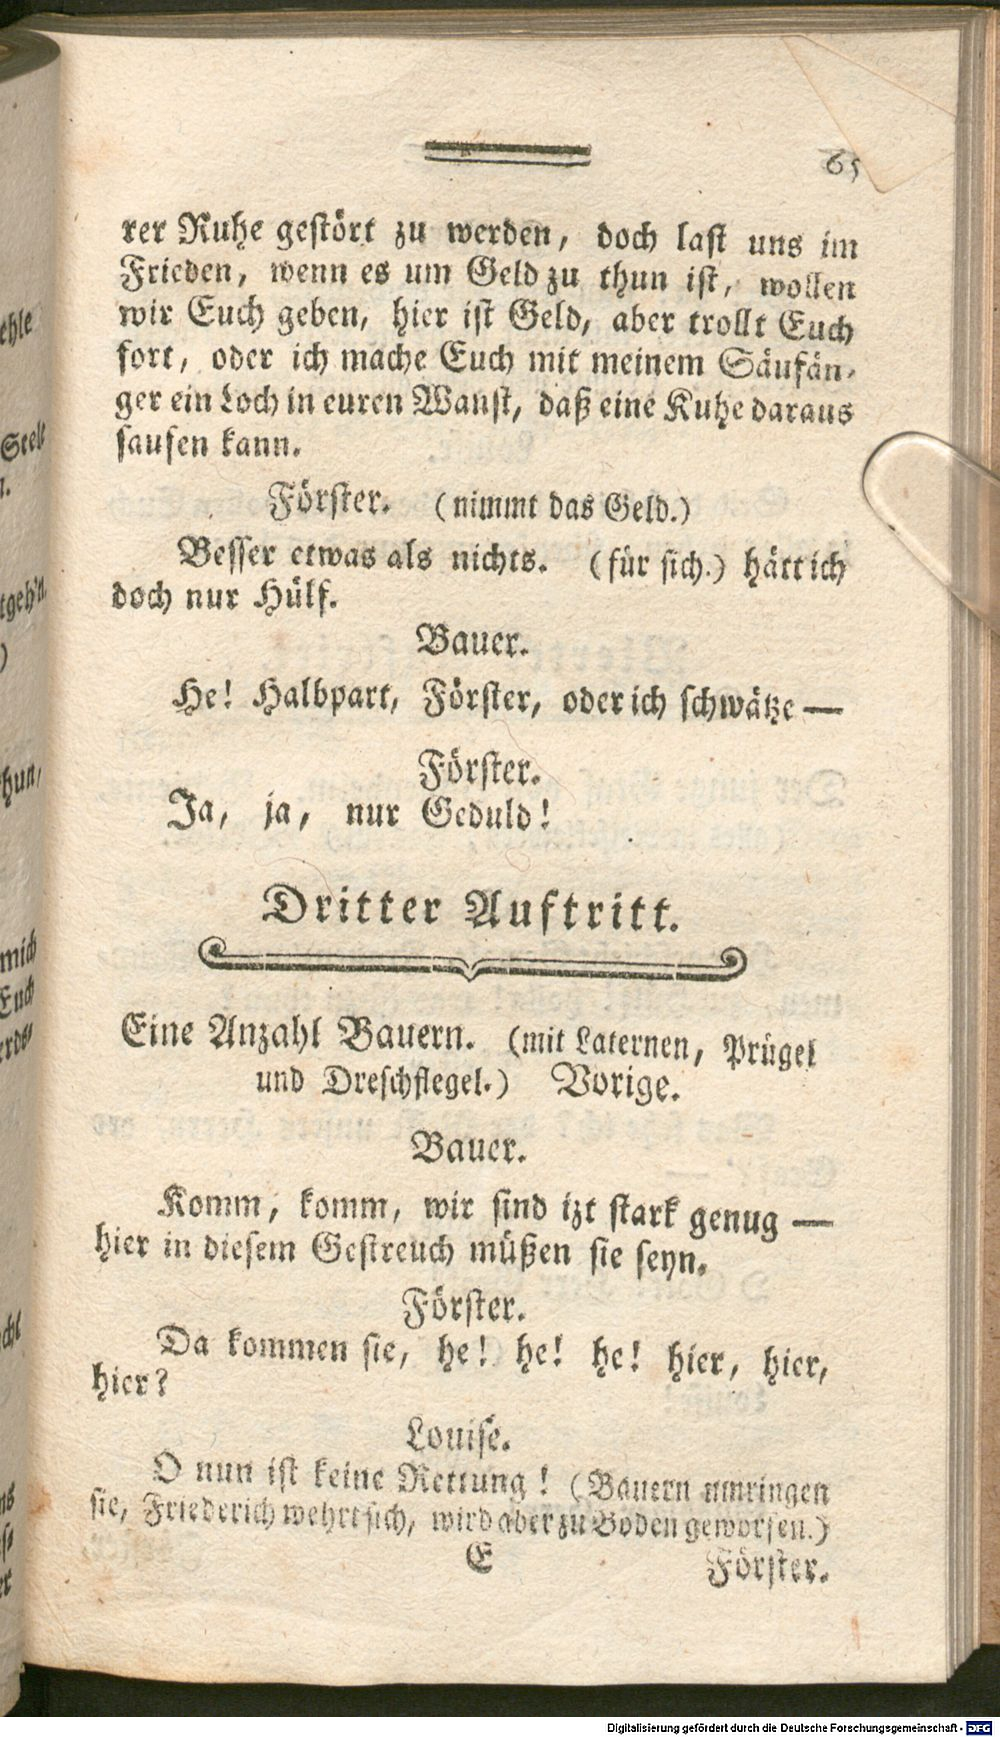 65
rer Ruhe gestört zu werden, doch last uns im
Frieden, wenn es um Geld zu thun ist, wollen
wir Euch geben, hier ist Geld, aber trollt Euch
fort, oder ich mache Euch mit meinem Säufän-
ger ein Loch in euren Wanst, daß eine Kuhe daraus
saufen kann.
Förster. (nimmt das Geld.)
Besser etwas als nichts. (für sich.) hätt ich
doch nur Hülf.
Bauer.
He! Halbpart, Förster, oder ich schwätze —
Förster.
Ja, ja, nur Geduld!
Dritter Auftritt.
Eine Anzahl Bauern. (mit Laternen, Prügel
und Dreschflegel.) Vorige.
Bauer.
Komm, komm, wir sind izt stark genug —
hier in diesem Gestreuch müßen sie seyn.
Förster.
Da kommen sie, he! he! he! hier, hier,
hier?
Louise.
O nun ist keine Rettung! (Bauern umringen
sie, Friederich wehrt sich, wird aber zu Boden geworfen.)
E Förster.
ehle
Stell
n.
tgeh'n.
)
hun,
mich
Euch
erds=
cht
ns
er
Digitalisierung gefördert durch die Deutsche Forschungsgemeinschaft - DFG